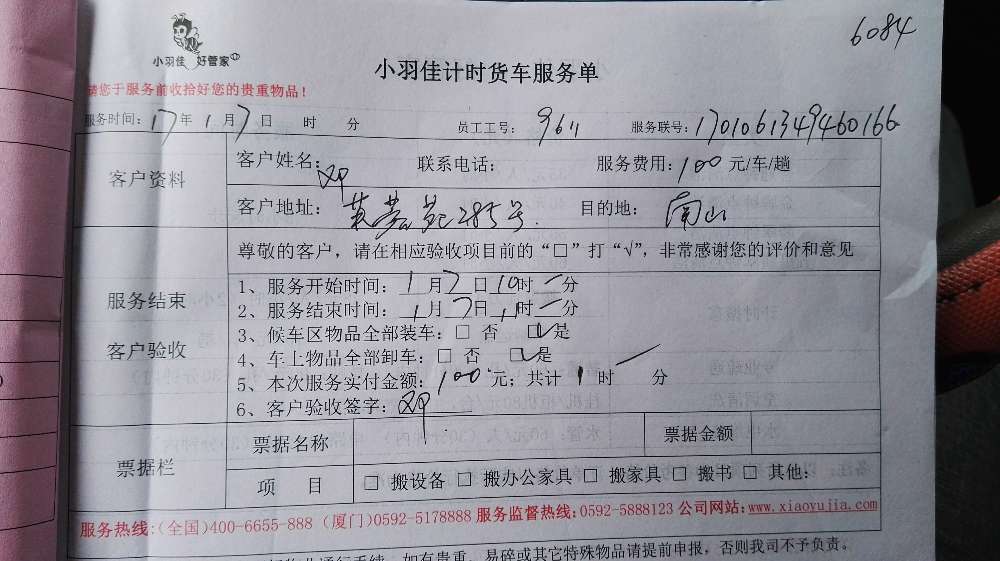 6084
小羽佳 好管家
小羽佳计时货车服务单
请您于服务前收拾好您的贵重物品！
服务时间：17年1月7日 时 分 员工工号：9611 服务联号：1701061349460166
客户资料
客户姓名：邓 联系电话： 服务费用：100元/车/趟
客户地址： 285号 目的地：南山
尊敬的客户，请在相应验收项目前的“□”打“√”，非常感谢您的评价和意见
服务结束
客户验收
1、服务开始时间：1月7日10时—分
2、服务结束时间：1月7日11时—分
3、候车区物品全部装车：□ 否 ☑是
4、车上物品全部卸车：□ 否 ☑是
5、本次服务实付金额：100元；共计1时 — 分
6、客户验收签字：邓
票据栏
票据名称 票据金额
项 目 □ 搬设备 □ 搬办公家具 □ 搬家具 □ 搬书 □ 其他：
服务热线:(全国)400-6655-888 (厦门)0592-5178888 服务监督热线:0592-5888123 公司网站:www.xiaoyujia.com
如有贵重、易碎或其它特殊物品请提前申报，否则我司不予负责。